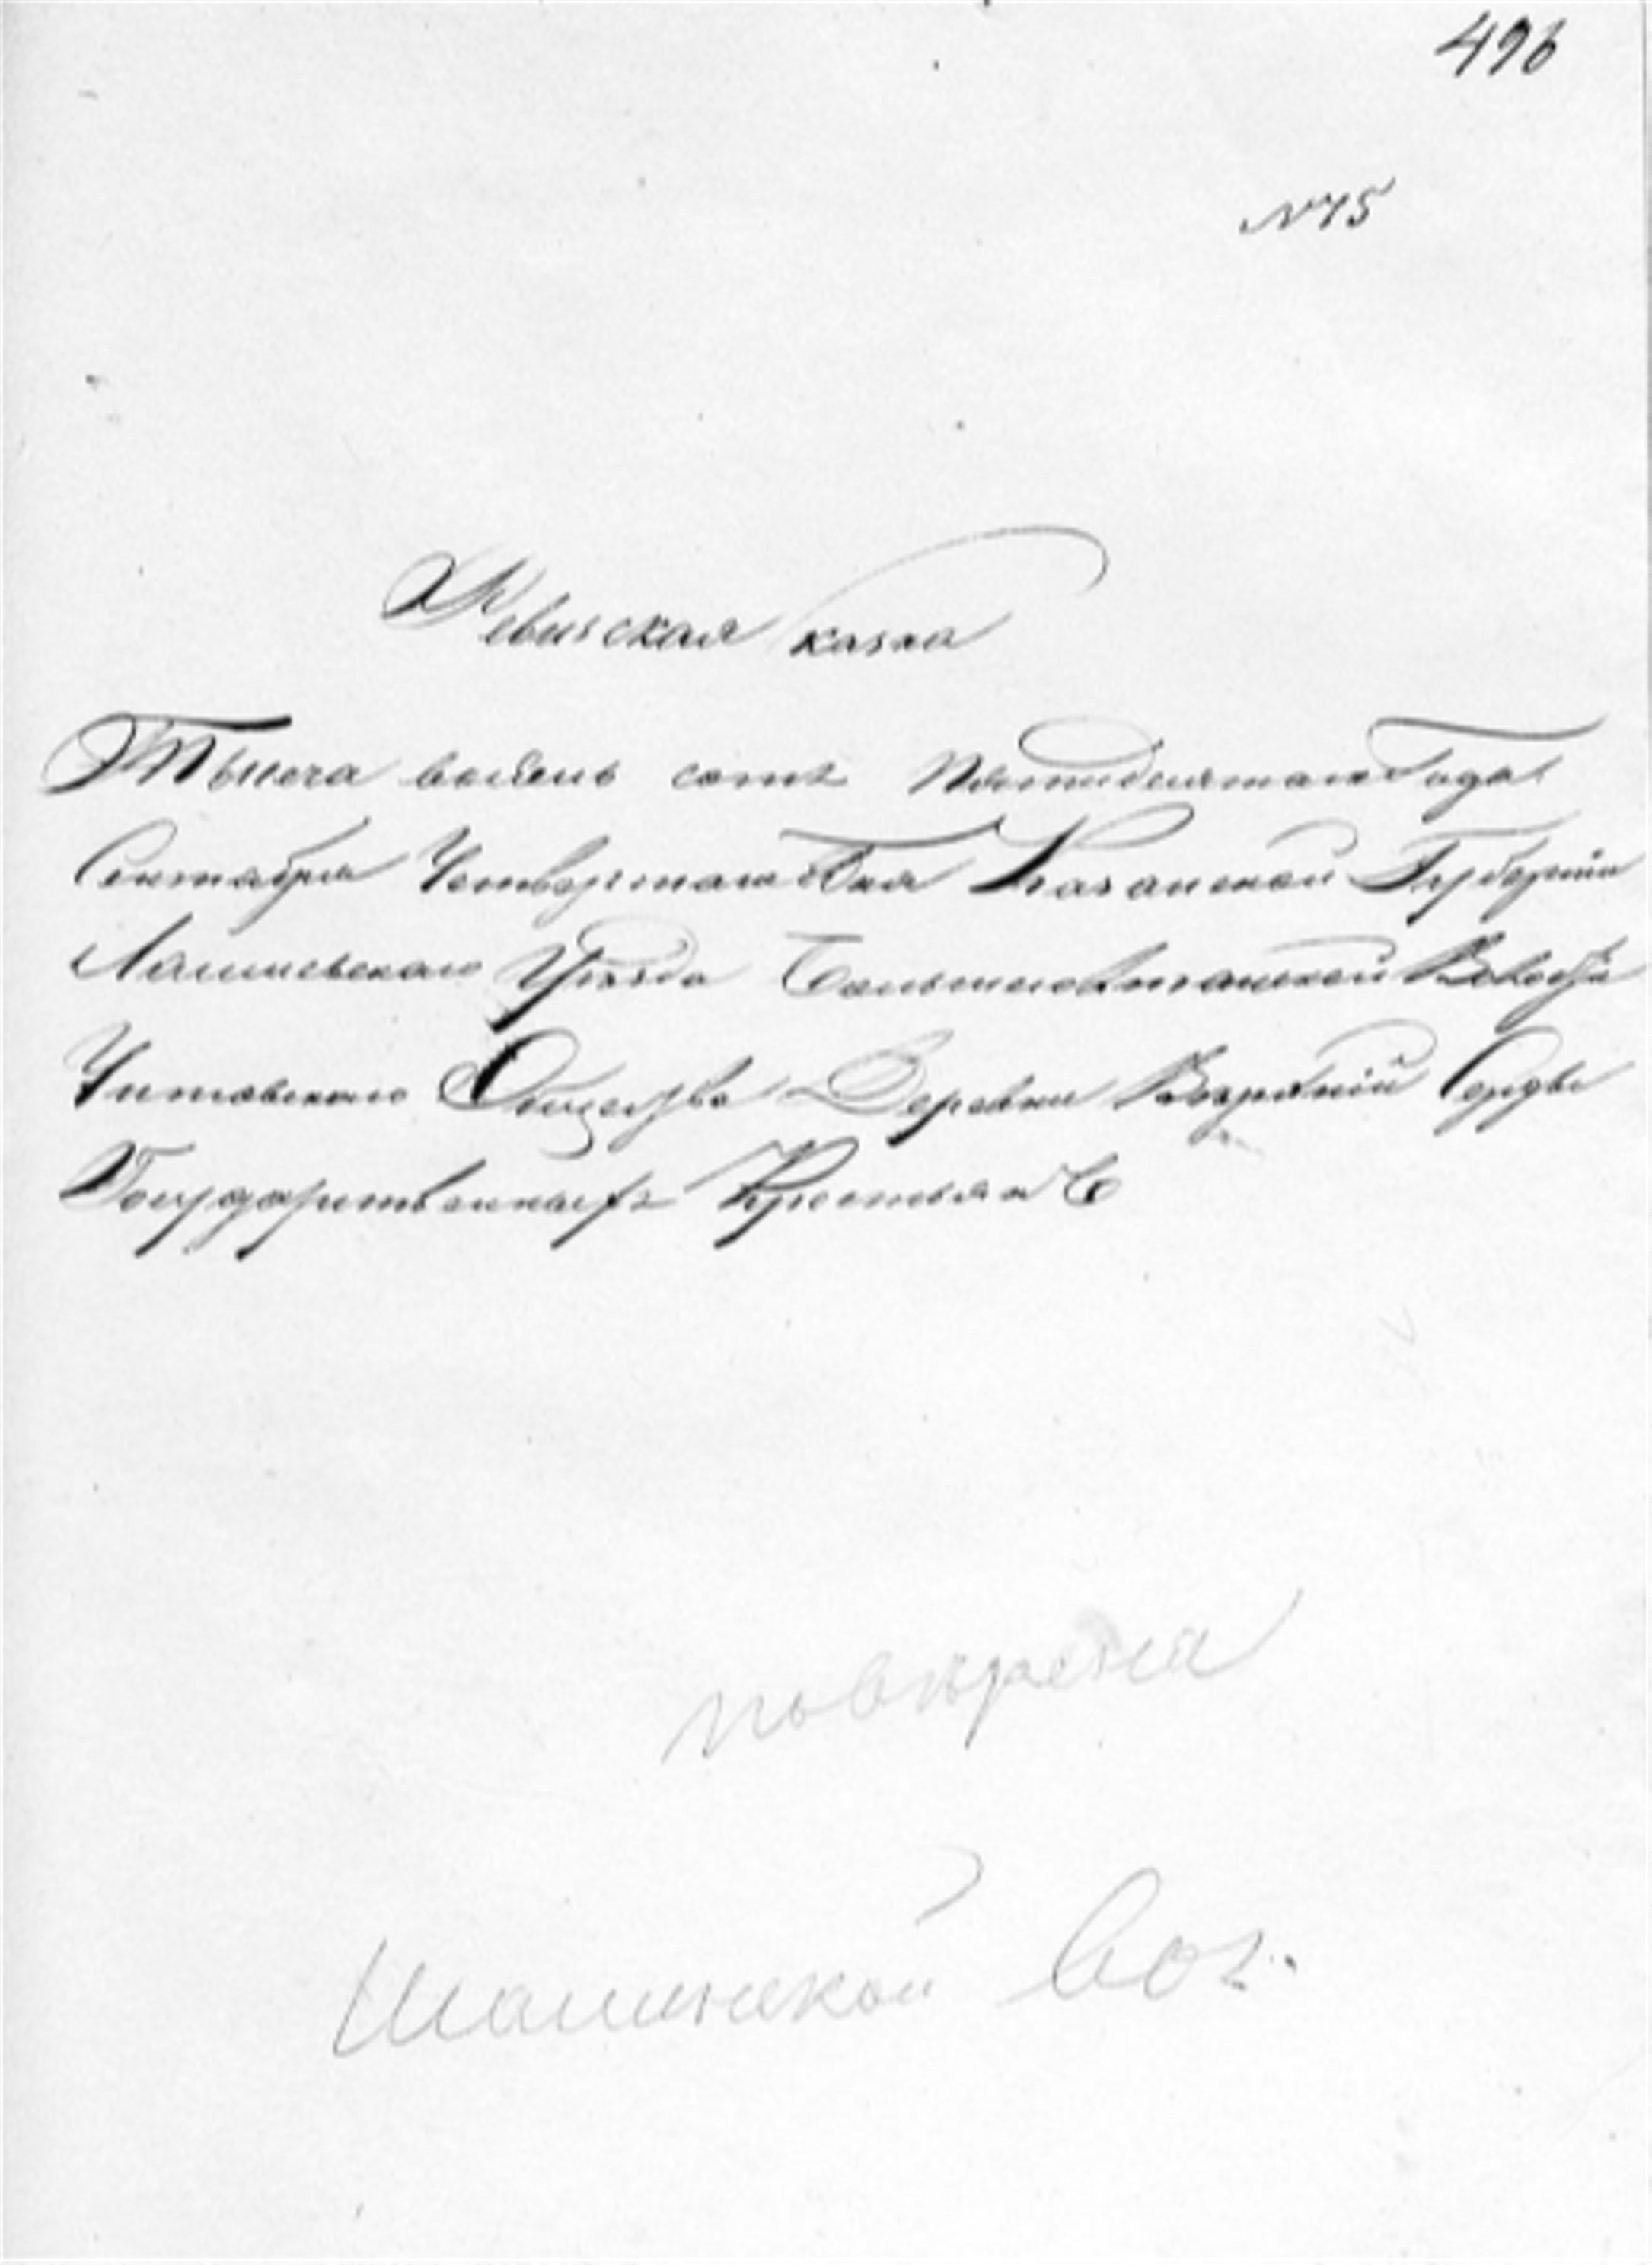 496
№15
Ревиская казка
Тысеча восемь сотъ Пятидесятаго Года
Сентября Четвертаго Дня Казанской Губерніи
Лаишевскаго Уѣзда
Читовскаго Общества Деревни Верхній Серды
Государственныхъ Крестьянъ
повѣрена
Шашинской Вол.